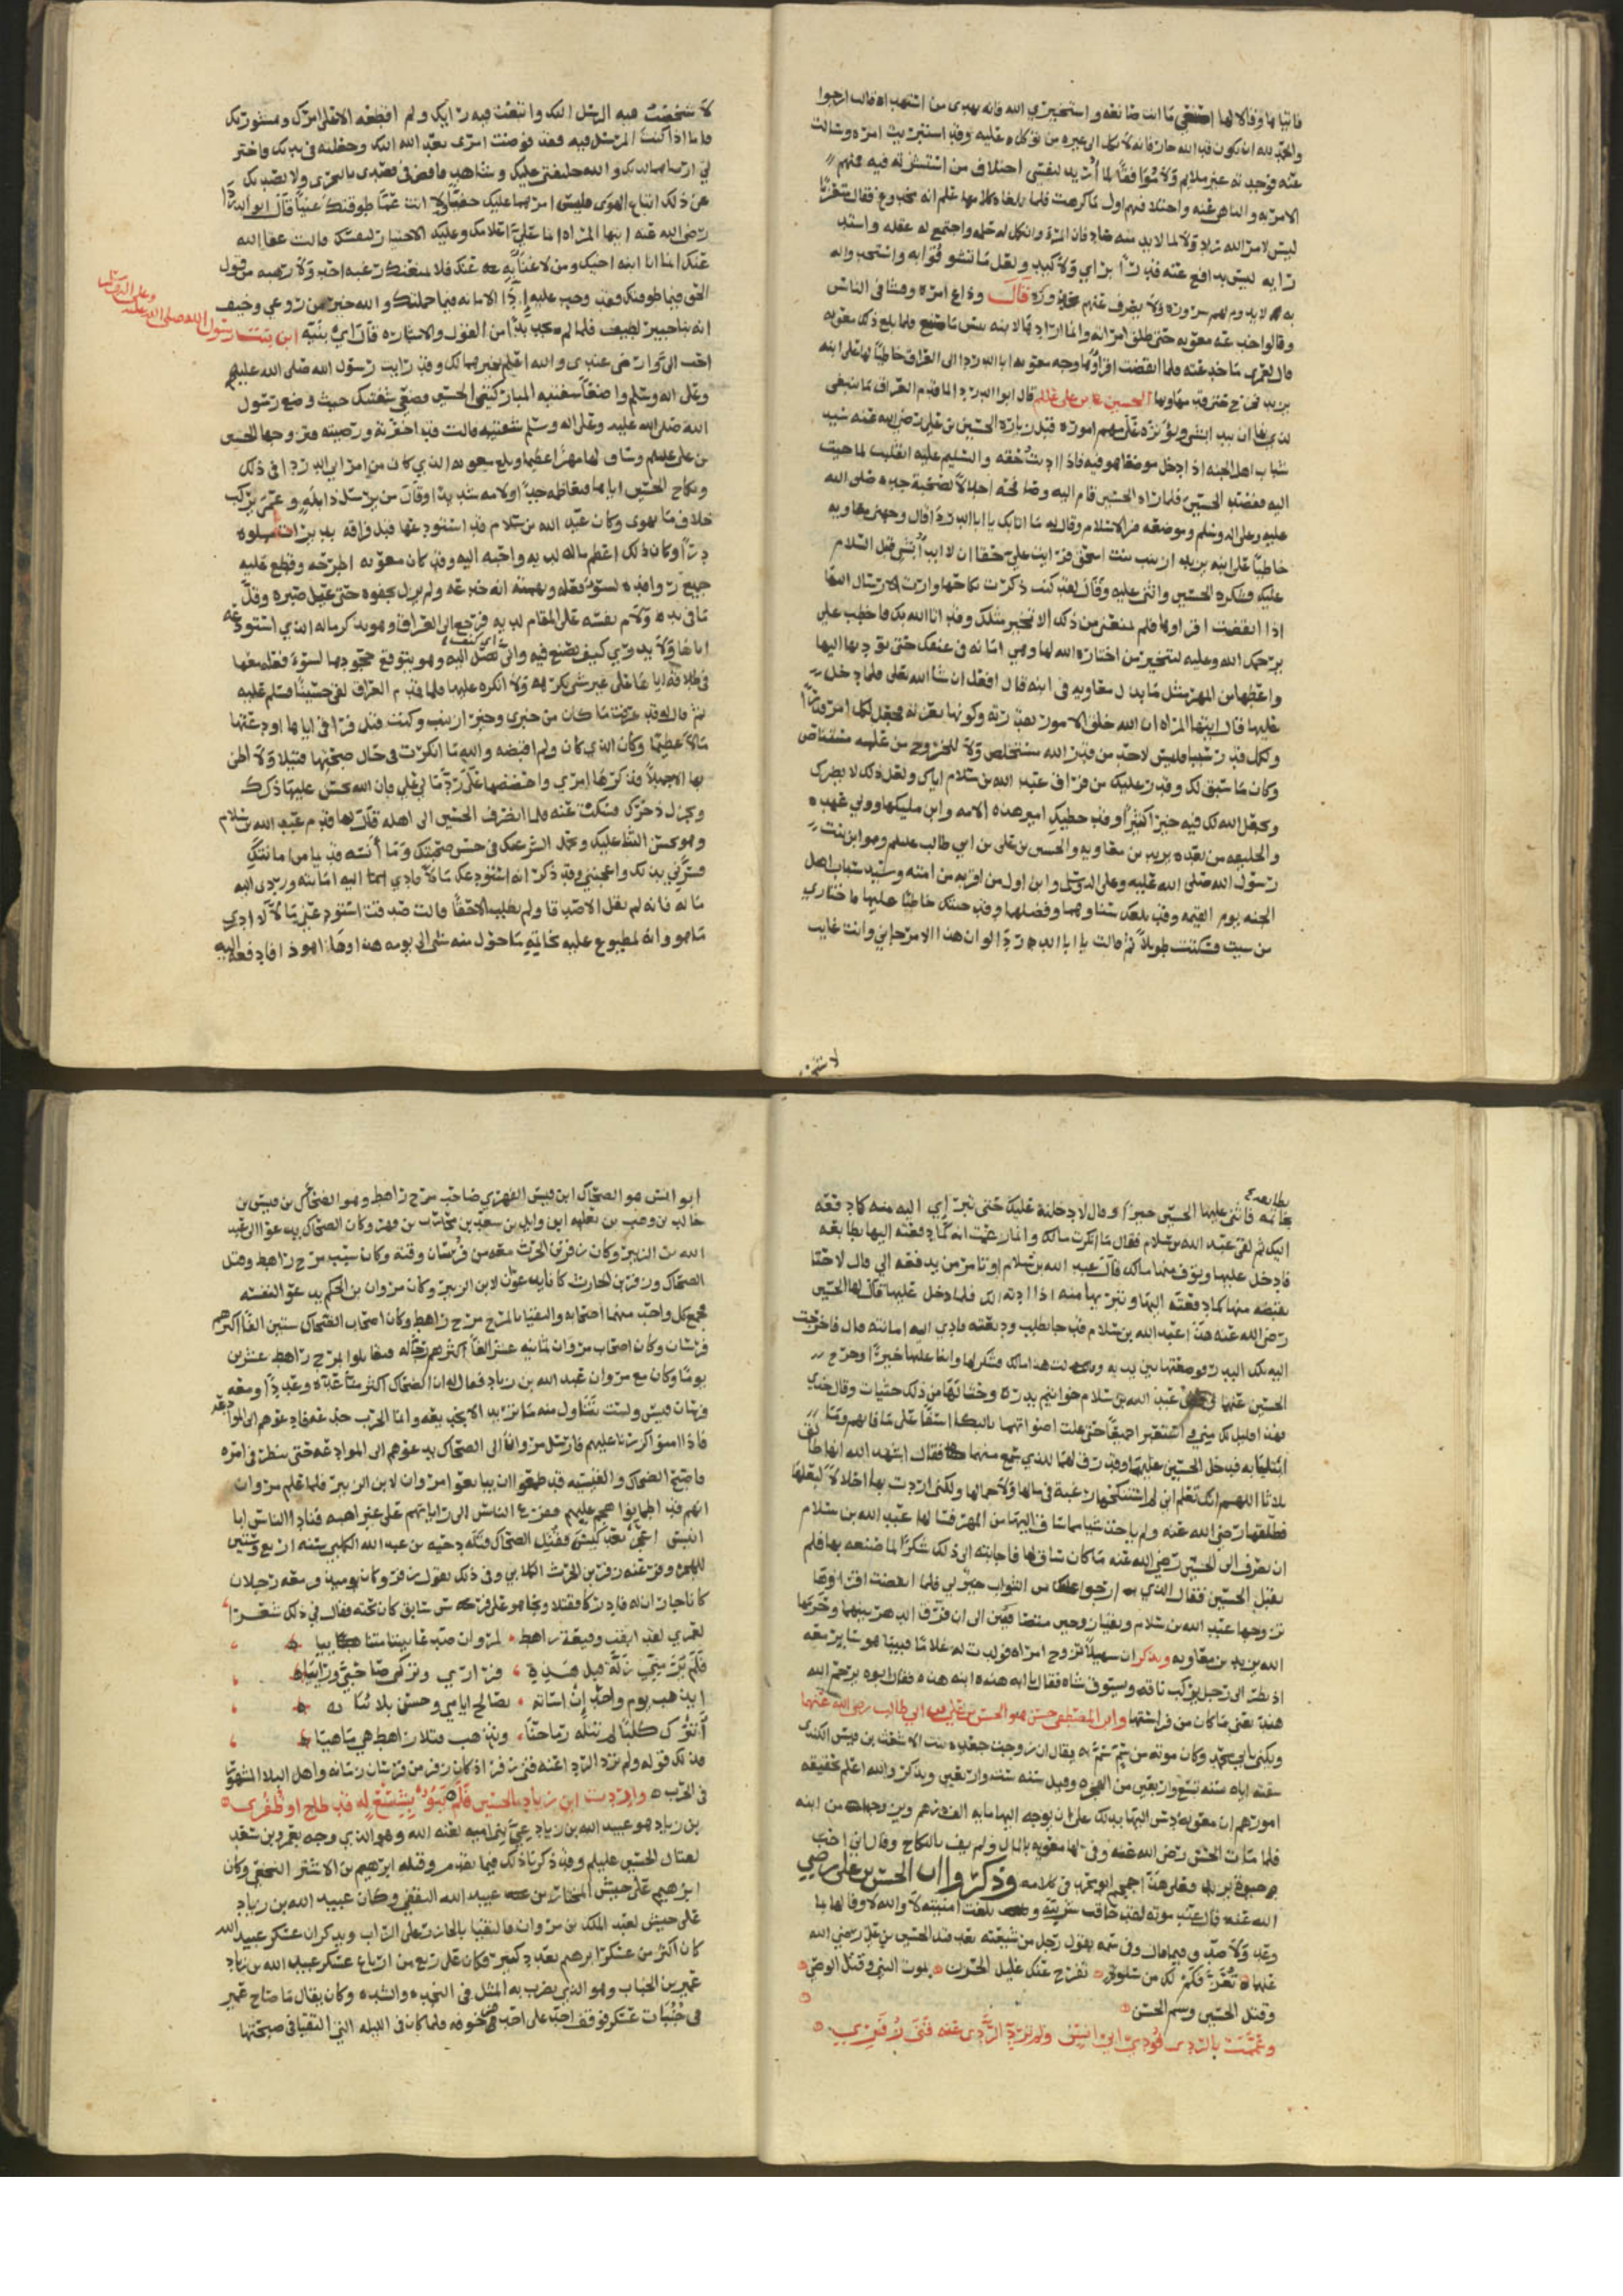 فاتياها وقالا لها اصنعي ما انت صانعه واستخيري الله فانه يهدى من استهداه قالت ارجوا
والحمد لله ان يكون قد الله خار فانه لا يكل الى غيره من توكل عليه وقد استبريت امره وسالت
عنه فوجدته غير ملايم ولا موافق لما اريد لنفسي اختلاف من استشرته فيه فمنهم
الامر به والناهى عنه واختلافهم اول ما كرهت فلما بلغاه كلامها علم انه مخدوع فقال متعزيا
ليس لامر الله راد ولا لما لابد منه صاد فان المرء وان كمل له حلمه واجتمع له عقله واستد
رايه ليس بدافع عنه قدرا براي ولا كيد ولعل ما سروا به واستحبوا له
لا يدوم لهم سروره ولا يصرف عنهم محذوره قال وذاع امره وفشا فى الناس
وقالوا خدعه معويه حتى طلق امراته وانما ارادها لابنه بئس ما صنع فلما بلغ ذلك معويه
قال لعمرى ما خدعته فلما انقضت اقراوها وجه معويه ابا الدردا الى العراق خاطبا لها على ابنه
يزيد فخرج حتى قدمها وبها الحسين بن على عليلم قال ابو الدردا لما قدم العراق ما ينبغى
لذي ان يبدا بشى ويؤثره على مهم اموره قبل زيارة الحسين بن على رضى الله عنه سيد
شباب اهل الجنه اذا دخل موضعا هو فيه فاذا اديت حقه والتسليم عليه انقلبت لما جيت
اليه فقصد الحسين فلما راه الحسين قام اليه وصافحه اجلالا لصحبة جده صلى الله
عليه وعلى اله وسلم وموضعه من الاسلام وقال له ما اتابك يا ابا الدردا قال وجهني معاويه
خاطبا على ابنه يزيد ارينب بنت اسحق فرايت علي حقا ان لا ابدا بشى قبل السلام
عليك فشكره الحسين واثنى عليه وقال لقد كنت ذكرت نكاحها واردت الارسال اليها
اذا انقضت اقراوها فلم يمنعني من ذلك الا تخير مثلك وقد اتا الله بك فاخطب على
يرحمك الله وعليه لتتخير من اختاره الله لها وهي امانه في عنقك حتى تؤديها اليها
واعطها من المهر مثل ما بدل معاويه فى ابنه قال افعل ان شا الله تعلى فلما دخل
عليها قال ايتها المراه ان الله خلق الامور بقدرته وكونها بعزته فجعل لكل امر قدرا
ولكل قدر سببا فليس لاحد من قدر الله مستخلص ولا للخروج من علمه مستناص
وكان ما سبق لك وقدر عليك من فراق عبد الله بن سلام اياك ولعل ذلك لا يضرك
ويجعل الله لك فيه خيرا كثيرا وقد خطبك امير هذه الامه وابن مليكها وولي عهده
والخليفه من بعده يزيد بن معاويه والحسين بن على بن ابي طالب عليلم وهو ابن بنت
رسول الله صلى الله عليه وعلى اله وسلم وابن اول من اقر به من امته وسيد شباب اهل
الجنه يوم القيمه وقد بلغك سناوهما وفضلهما وقد جيتك خاطبا عليهما فاختاري
من شيت فسكتت طويلا ثم قالت يا ابا الدردا لو ان هذا الامر جاني وانت غايب
لا شخصت
لا شخصت فيه الرسل اليك واتبعت فيه رايك ولم اقطعه الا على امرك ومشورتك
فاما اذا كنت المرسل فيه فقد فوضت امرى بعد الله اليك وجعلته فى يديك فاختر
لي ارضاهما لديك والله خليفتي عليك وشاهد فاقض فى قصدى بالتحرى ولا يصدنك
عن ذلك اتباع الهوى فليس امرهما عليك خفيا ولا انت عما طوقتك غبيا قال ابو الدردا
رضى الله عنه ايتها المراه انما علي اعلامك وعليك الاختيار لنفسك قالت عفا الله
عنك انما انا ابنه اخيك ومن لا غنا به عنك فلا يمنعك رغبه احد ولا رهبه من قول
الحق فيما طوقتك فقد وجب عليك اذا الامانه فيما حملتك والله خير من روعي وخيف
انه بنا خبير لطيف فلما لم يجد بدا من القول والاشاره قال اي بنيه ابن بنت رسول الله صلى الله عليه وعلى اله وسلم
احب الي وارضى عندى والله اعلم بخيرهما لك وقد رايت رسول الله صلى الله عليه
وعلى اله وسلم واضعا شفتيه المباركتين على شفتي الحسين فضعي شفتيك حيث وضع رسول
الله صلى الله عليه وعلى اله وسلم شفتيه قالت قد اخترته ورضيته فتزوجها الحسين
بن على عليلم وساق لها مهرا عظيما وبلغ معويه الذي كان من امر ابى الدردا فى ذلك
ونكاح الحسين اياها فتعاظمه جدا ولامه شديدا وقال من يرسل ذا بله وعمى يركب
خلاف ما يهوى وكان عبد الله بن سلام قد استودعها قبل فراقه بدرات مملوه
درا وكان ذلك اعظم ماله لديه واحبه اليه وقد كان معويه اطرحه وقطع عليه
جميع روافده لسوء قوله وتهمته انه خدعه ولم يزل يجفوه حتى عيل صبره وقل
ما فى يده ولام نفسه على المقام لديه فرجع الى العراق وهو يذكر ماله الذي استودعه
اياها ولا يدري كيف يصنع فيه وانى يصل اليه وهو يتوقع جحودها لسوء فعله معها
فى طلاقه اياها على غير شى كرهه ولا انكره عليها فلما قدم العراق لقى حسينا فسلم عليه
ثم قال له قد عرفت ما كان من خبري وخبر ارينب وكنت قبل فراقى اياها اودعتها
مالا عظيما وكان الذي كان ولم اقبضه والله ما انكرت فى حال صحبتها فتيلا ولا اظن
بها الا جميلا فذكرها امرى واحضضها على رد مالي علي فان الله يحسن عليها ذكرك
ويجزل ذخرك فسكت عنه فلما انصرف الحسين الى اهله قال لها قدم عبد الله بن سلام
وهو يحسن الثنا عليك ويحمل النشر عنك فى حسن صحبتك وما انسه قديما من امانتك
فسرني بذلك واعجبني وقد ذكر انه استودعك مالا فادي اليه امانته وردي اليه
ماله فانه لم يقل الا صدقا ولم يطلب الا حقا قالت صدق استودعني مالا لا ادري
ما هو وانه لمطبوع عليه بخاتمه ما حول منه شى الى يومه هذا وها هو ذا فادفعه اليه
بطابعه
بخاتمه فاثنى عليها الحسين خيرا وقال لا دخلنه عليك حتى تبري اليه منه كما دفعه
اليك ثم لقى عبد الله بن سلام فقال ما انكرت مالك وانها زعمت انه كما دفعته اليها بطابعه
فادخل عليها وتوف منها مالك قال عبد الله بن سلام او تامر من يدفعه الي قال لا حتى
تقبضه منها كما دفعته اليها وتبريها منه اذا ادته اليك فلما دخل عليها قال لها الحسين
رضى الله عنه هذا عبد الله بن سلام قد جا يطلب وديعته فادي اليه امانته قال فاخرجت
اليه تلك البدر فوضعتها بين يديه وقالت هذا مالك فشكر لها واثنا عليها خيرا وخرج
الحسين عنهما ففض عبد الله بن سلام خواتيم بدره وحثا لها من ذلك حثيات وقال خذي
فهذا قليل لك مني واستعبرا جميعا حتى علت اصواتهما بالبكا اسفا على ما فاتهم وما
ابتليا به فدخل الحسين عليهما وقد رق لهما للذي سمع منهما فقال اشهد الله انها طالق
ثلاثا اللهم انك تعلم اني لم استنكحها رغبة فى مالها ولا جمالها ولكنى اردت بها احلالها لبعلها
فطلقها رضى الله عنه ولم ياخذ شيا مما ساق اليها من المهر فسالها عبد الله بن سلام
ان تصرف الى الحسين رضى الله عنه ما كان ساق لها فاجابته الى ذلك شكرا لما صنعه بها فلم
يقبل الحسين فقال الذي ارجوا عليه من الثواب خير لي فلما انقضت اقراوها
تزوجها عبد الله بن سلام وبقيا زوجين متصافيين الى ان فرق الدهر بينهما وحرمها
الله يزيد بن معاويه ويذكر ان سهيلا تزوج امراه فولدت له غلاما فبينا هو ساير معه
اذ نظر الى رجل يركب ناقه ويسوق شاه فقال يا ابه هذه ابنه هذه فقال ابوه يرحم الله
هند تعنى ما كان من فراستها وابن المصطفى حسن هو الحسن بن على بن ابي طالب رضى الله عنهما
ويكنى بابي محمد وكان موته من سم سم به يقال ان زوجته جعده بنت الاشعث بن قيس الكندي
سقته اياه سنه تسع واربعين من الهجره وقيل سنه ست واربعين ويذكر والله اعلم بحقيقه
امورهم ان معويه دس اليها بذلك على ان يوجه اليها مايه الف درهم ويزوجها من ابنه
فلما مات الحسن رضى الله عنه وفى لها معويه بالمال ولم يف بالنكاح وقال انى احب
حيوة يزيد وفعل هذا اجمع ابو محمد فى كلامه وذكروا ان الحسن بن على رضي
الله عنه قال عند موته لقد حاقت شربته وبلغت امنيته والله لا وفا لها بما
وعد ولا صدق فيما قال وفى سمه يقول رجل من شيعته بعد قتل الحسين بن على رضى الله
عنهما تعز فكم لك من سلوة تفرج عنك غليل الحزن بموت النبي وقتل الوصي
وقتل الحسين وسم الحسن
وعممت بالردى فودي ابى انس ولم ترد الردى عنه قنى زفر
ابو انس هو الضحاك ابن قيس الفهري صاحب مرج راهط وهو الضحاك بن قيس بن
خالد بن وهب بن ثعلبه ابن وايله بن سعد بن محارب بن فهر وكان الضحاك يدعو الى عبد
الله بن الزبير وكان زفر بن الحرث معه من فرسان وقته وكان سبب مرج راهط وقتل
الضحاك وزفر بن الحارث كانا يدعوان لابن الزبير وكان مروان بن الحكم يدعو الى نفسه
فجمع كل واحد منهما اصحابه والتقيا بالمرج مرج راهط وكان اصحاب الضحاك ستين الفا اكثرهم
فرسان وكان اصحاب مروان ثمانيه عشر الفا اكثرهم رجاله فتقابلوا بمرج راهط عشرين
يوما وكان مع مروان عبيد الله بن زياد فقال له ان الضحاك اكثر منا عدة وعددا ومعه
فرسان قيس ولست تتناول منه ما تريد الا بخديعه وانما الحرب خدعه فادعهم الى الموادعه
فاذا امنوا كررنا عليهم فارسل مروان الى الضحاك يدعوهم الى الموادعه حتى ينظر فى امره
فاصبح الضحاك والقيسيه قد طمعوا ان يبايعوا مروان لابن الزبير فلما علم مروان
انهم قد اطمانوا هجم عليهم ففزع الناس الى راياتهم على غير اهبه فنادا الناس ابا
انيس اعجز بعد كيس فقتل الضحاك قتله دحيه بن عبد الله الكلبي سنه اربع وستين
للهجره وفر عنه زفر بن الحرث الكلابي وفى ذلك يقول زفر وكان يوميذ ومعه رجلان
كانا جاراه فادركا فقتلا ونجا هو على فرس سابق كان تحته فقال في ذلك شعرا
لعمري لقد ابقت وقيعة راهط لمروان صدعا بيننا متنائيا
فلم تر مني زلة قبل هذه فراري وتركي صاحبي ورائيا
ايذهب يوم واحد ان اساته بصالح ايامي وحسن بلائيا
اتترك كلبا لم تنله رماحنا وتذهب قتلا راهط هي ما هيا
فذلك قوله ولم ترد الردا عنه قنى زفر اذ كان زفر من فرسان زمانه واهل البلا المشهور
فى الحرب واردت ابن زياد بالحسين فلم يبؤ بشسع له قد طاح او ظفر
بن زياد هو عبيد الله بن زياد دعي بني اميه لعنه الله وهو الذي وجه بعمر بن سعد
لقتال الحسين عليلم وقد ذكرنا ذلك فيما تقدم وقتله ابرهيم بن الاشتر النخعي وكان
ابرهيم على جيش المختار بن عبيد الله الثقفي وكان عبيد الله بن زياد
على جيش لعبد الملك بن مروان فالتقيا بالخازر على الزاب ويذكر ان عسكر عبيد الله
كان اكثر من عسكر ابرهيم بعدد كبير فكان على ربع من ارباع عسكر عبيد الله بن زياد
عمير بن الحباب وهو الذي يضرب به المثل فى النجده والشده وكان يقال ما صاح عمير
فى جنبات عسكر فوقف احد على احد من خوفه فلما كان فى الليله التي التقيا فى صبيحتها